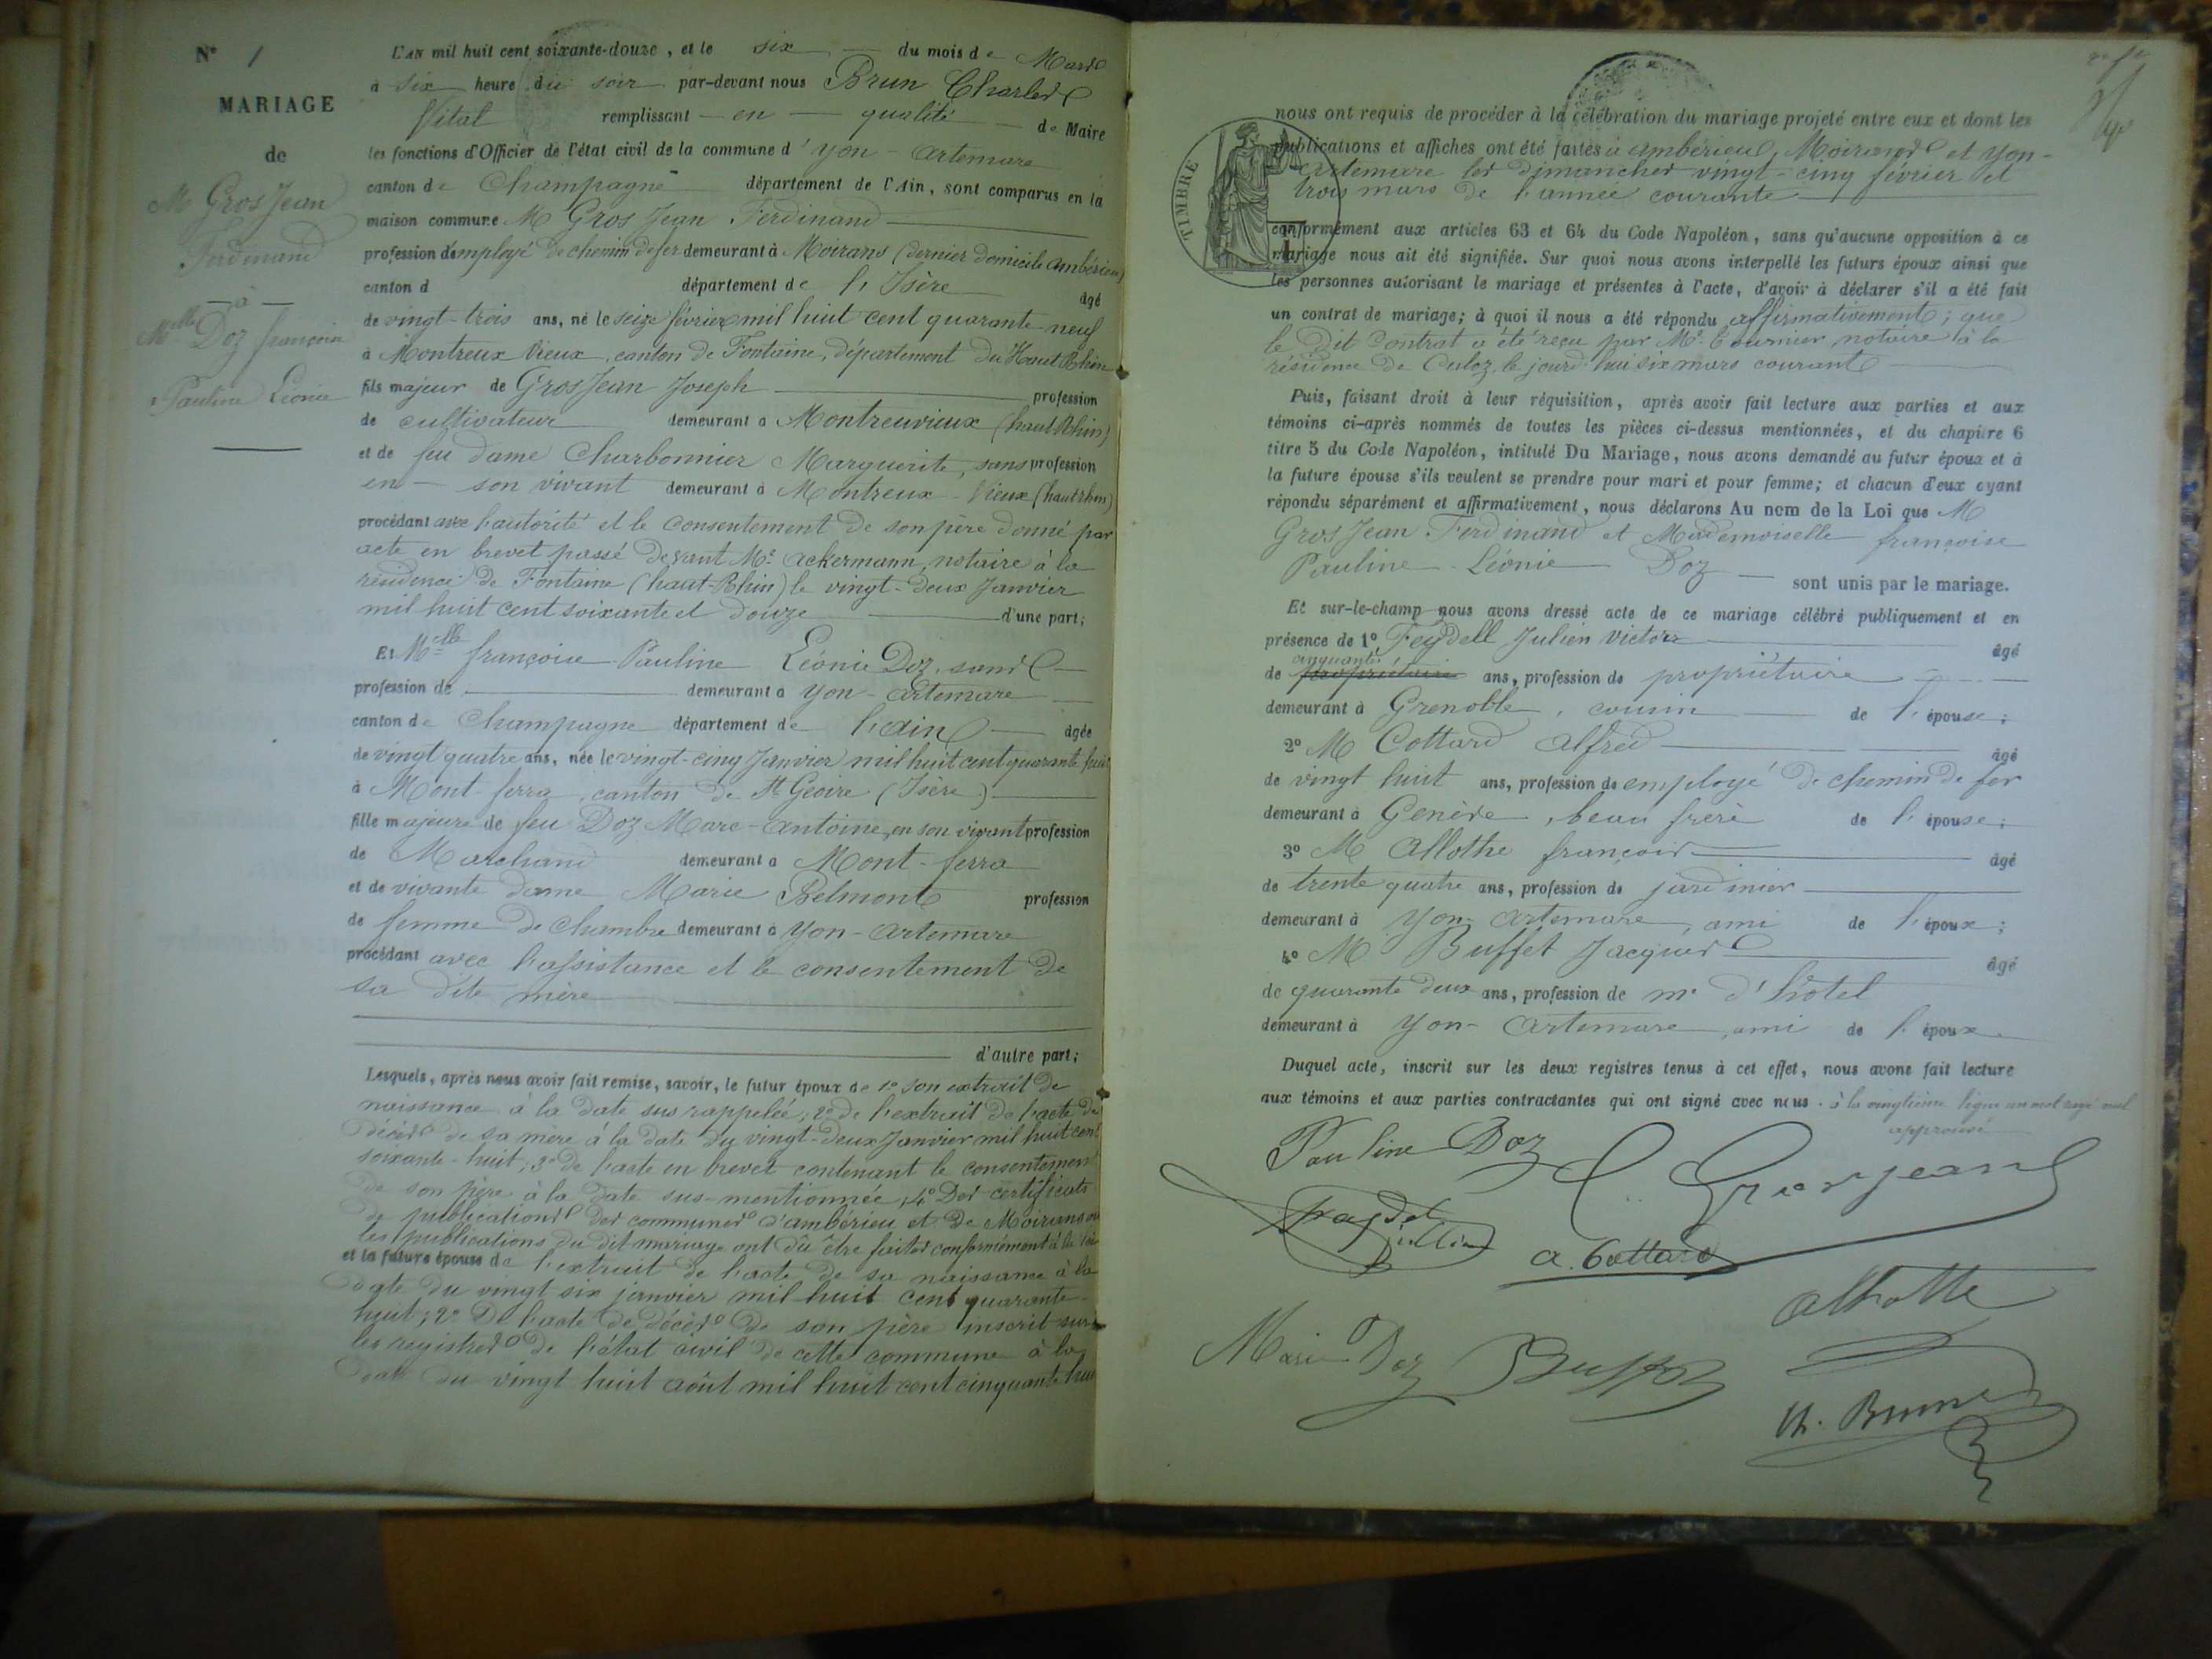 N° 1
MARIAGE
de
M Gros Jean
Ferdinand
— à —
Melle Doz françoise
Pauline Léonie
L'AN mil huit cent soixante-douze, et le six du mois de Mars
à six heure du soir par-devant nous Brun Charles
Vital remplissant en qualité de Maire
les fonctions d'Officier de l'état civil de la commune d'yon-artemare
canton de Champagne département de l'Ain, sont comparus en la
maison commune M Gros Jean Ferdinand
profession d'employé de chemin de fer demeurant à Moirans (dernier domicile ambérieu)
canton d département de l'Isère âgé
de vingt-trois ans, né le seize février mil huit cent quarante-neuf
à Montreux Vieux, canton de Fontaine, département du Haut Rhin
fils majeur de GrosJean Joseph profession
de cultivateur demeurant à Montreuvieux (haut Rhin)
et de feu dame Charbonnier Marguerite, sans profession
en son vivant demeurant à Montreux-Vieux (haut rhin)
procédant avec l'autorité et le consentement de son père donné par
acte en brevet passé devant Me ackermann, notaire à la
résidence de Fontaine (haut-Rhin) le vingt-deux Janvier
mil huit cent soixante et douze d'une part;
Et Melle françoise Pauline Léonie Doz, sans
profession de demeurant à yon-artemare
canton de Champagne département de l'ain âgée
de vingt quatre ans, née le vingt-cinq Janvier mil huit cent quarante huit
à Mont-ferra, canton de St Geoire (Isère)
fille majeure de feu Doz Marc-antoine, en son vivant profession
de Marchand demeurant à Mont-ferra
et de vivante dame Marie Belmont profession
de femme de chambre demeurant à yon-artemare
procédant avec l'assistance et le consentement de
sa dite mère
d'autre part;
Lesquels, après nous avoir fait remise, savoir, le futur époux de 1° son extrait de
naissance à la date sus rappelée; 2° de l'extrait de l'acte de
décès de sa mère à la date du vingt-deux Janvier mil huit cent
soixante-huit; 3° de l'acte en brevet contenant le consentement
de son père à la date sus-mentionnée; 4° Des certificats
de publications des communes d'ambérieu et de Moirans où
les publications du dit mariage ont dû être faites conformément à la loi
et la future épouse de l'extrait de l'acte de sa naissance à la
date du vingt six janvier mil huit cent quarante-
huit; 2° De l'acte de décès de son père inscrit sur
les registres de l'état civil de cette commune à la
date du vingt huit août mil huit cent cinquante huit
nous ont requis de procéder à la célébration du mariage projeté entre eux et dont les
publications et affiches ont été faites à ambérieu, Moirans et yon-
artemare les dimanches vingt-cinq février et
trois mars de l'année courante
TIMBRE
conformément aux articles 63 et 64 du Code Napoléon, sans qu'aucune opposition à ce
mariage nous ait été signifiée. Sur quoi nous avons interpellé les futurs époux ainsi que
les personnes autorisant le mariage et présentes à l'acte, d'avoir à déclarer s'il a été fait
un contrat de mariage; à quoi il nous a été répondu affirmativement; que
le dit Contrat a été reçu par Me notaire à la
résidence de Culoz le jourd'hui six mars courant
Puis, faisant droit à leur réquisition, après avoir fait lecture aux parties et aux
témoins ci-après nommés de toutes les pièces ci-dessus mentionnées, et du chapitre 6
titre 5 du Code Napoléon, intitulé Du Mariage, nous avons demandé au futur époux et à
la future épouse s'ils veulent se prendre pour mari et pour femme; et chacun d'eux ayant
répondu séparément et affirmativement, nous déclarons Au nom de la Loi que M
Gros Jean Ferdinand et Mademoiselle françoise
Pauline Léonie Doz sont unis par le mariage.
Et sur-le-champ nous avons dressé acte de ce mariage célébré publiquement et en
présence de 1° Feydell Julien victor âgé
cinquante
de propriétaire ans, profession de propriétaire
demeurant à Grenoble, cousin de l'épouse;
2° M Cottard alfred âgé
de vingt huit ans, profession de employé de chemin de fer
demeurant à Genève, beau frère de l'épouse;
3° M allothe françois âgé
de trente quatre ans, profession de jardinier
demeurant à yon-artemare, ami de l'époux;
4° M Buffet Jacques âgé
de quarante deux ans, profession de me d'hôtel
demeurant à yon-artemare, ami de l'époux.
Duquel acte, inscrit sur les deux registres tenus à cet effet, nous avons fait lecture
aux témoins et aux parties contractantes qui ont signé avec nous. à la vingtième ligne un mot rayé nul
approuvé
Pauline Doz
Grosjean
a. Cottard
allotte
Marie Doz Buffet
Ch. Brun